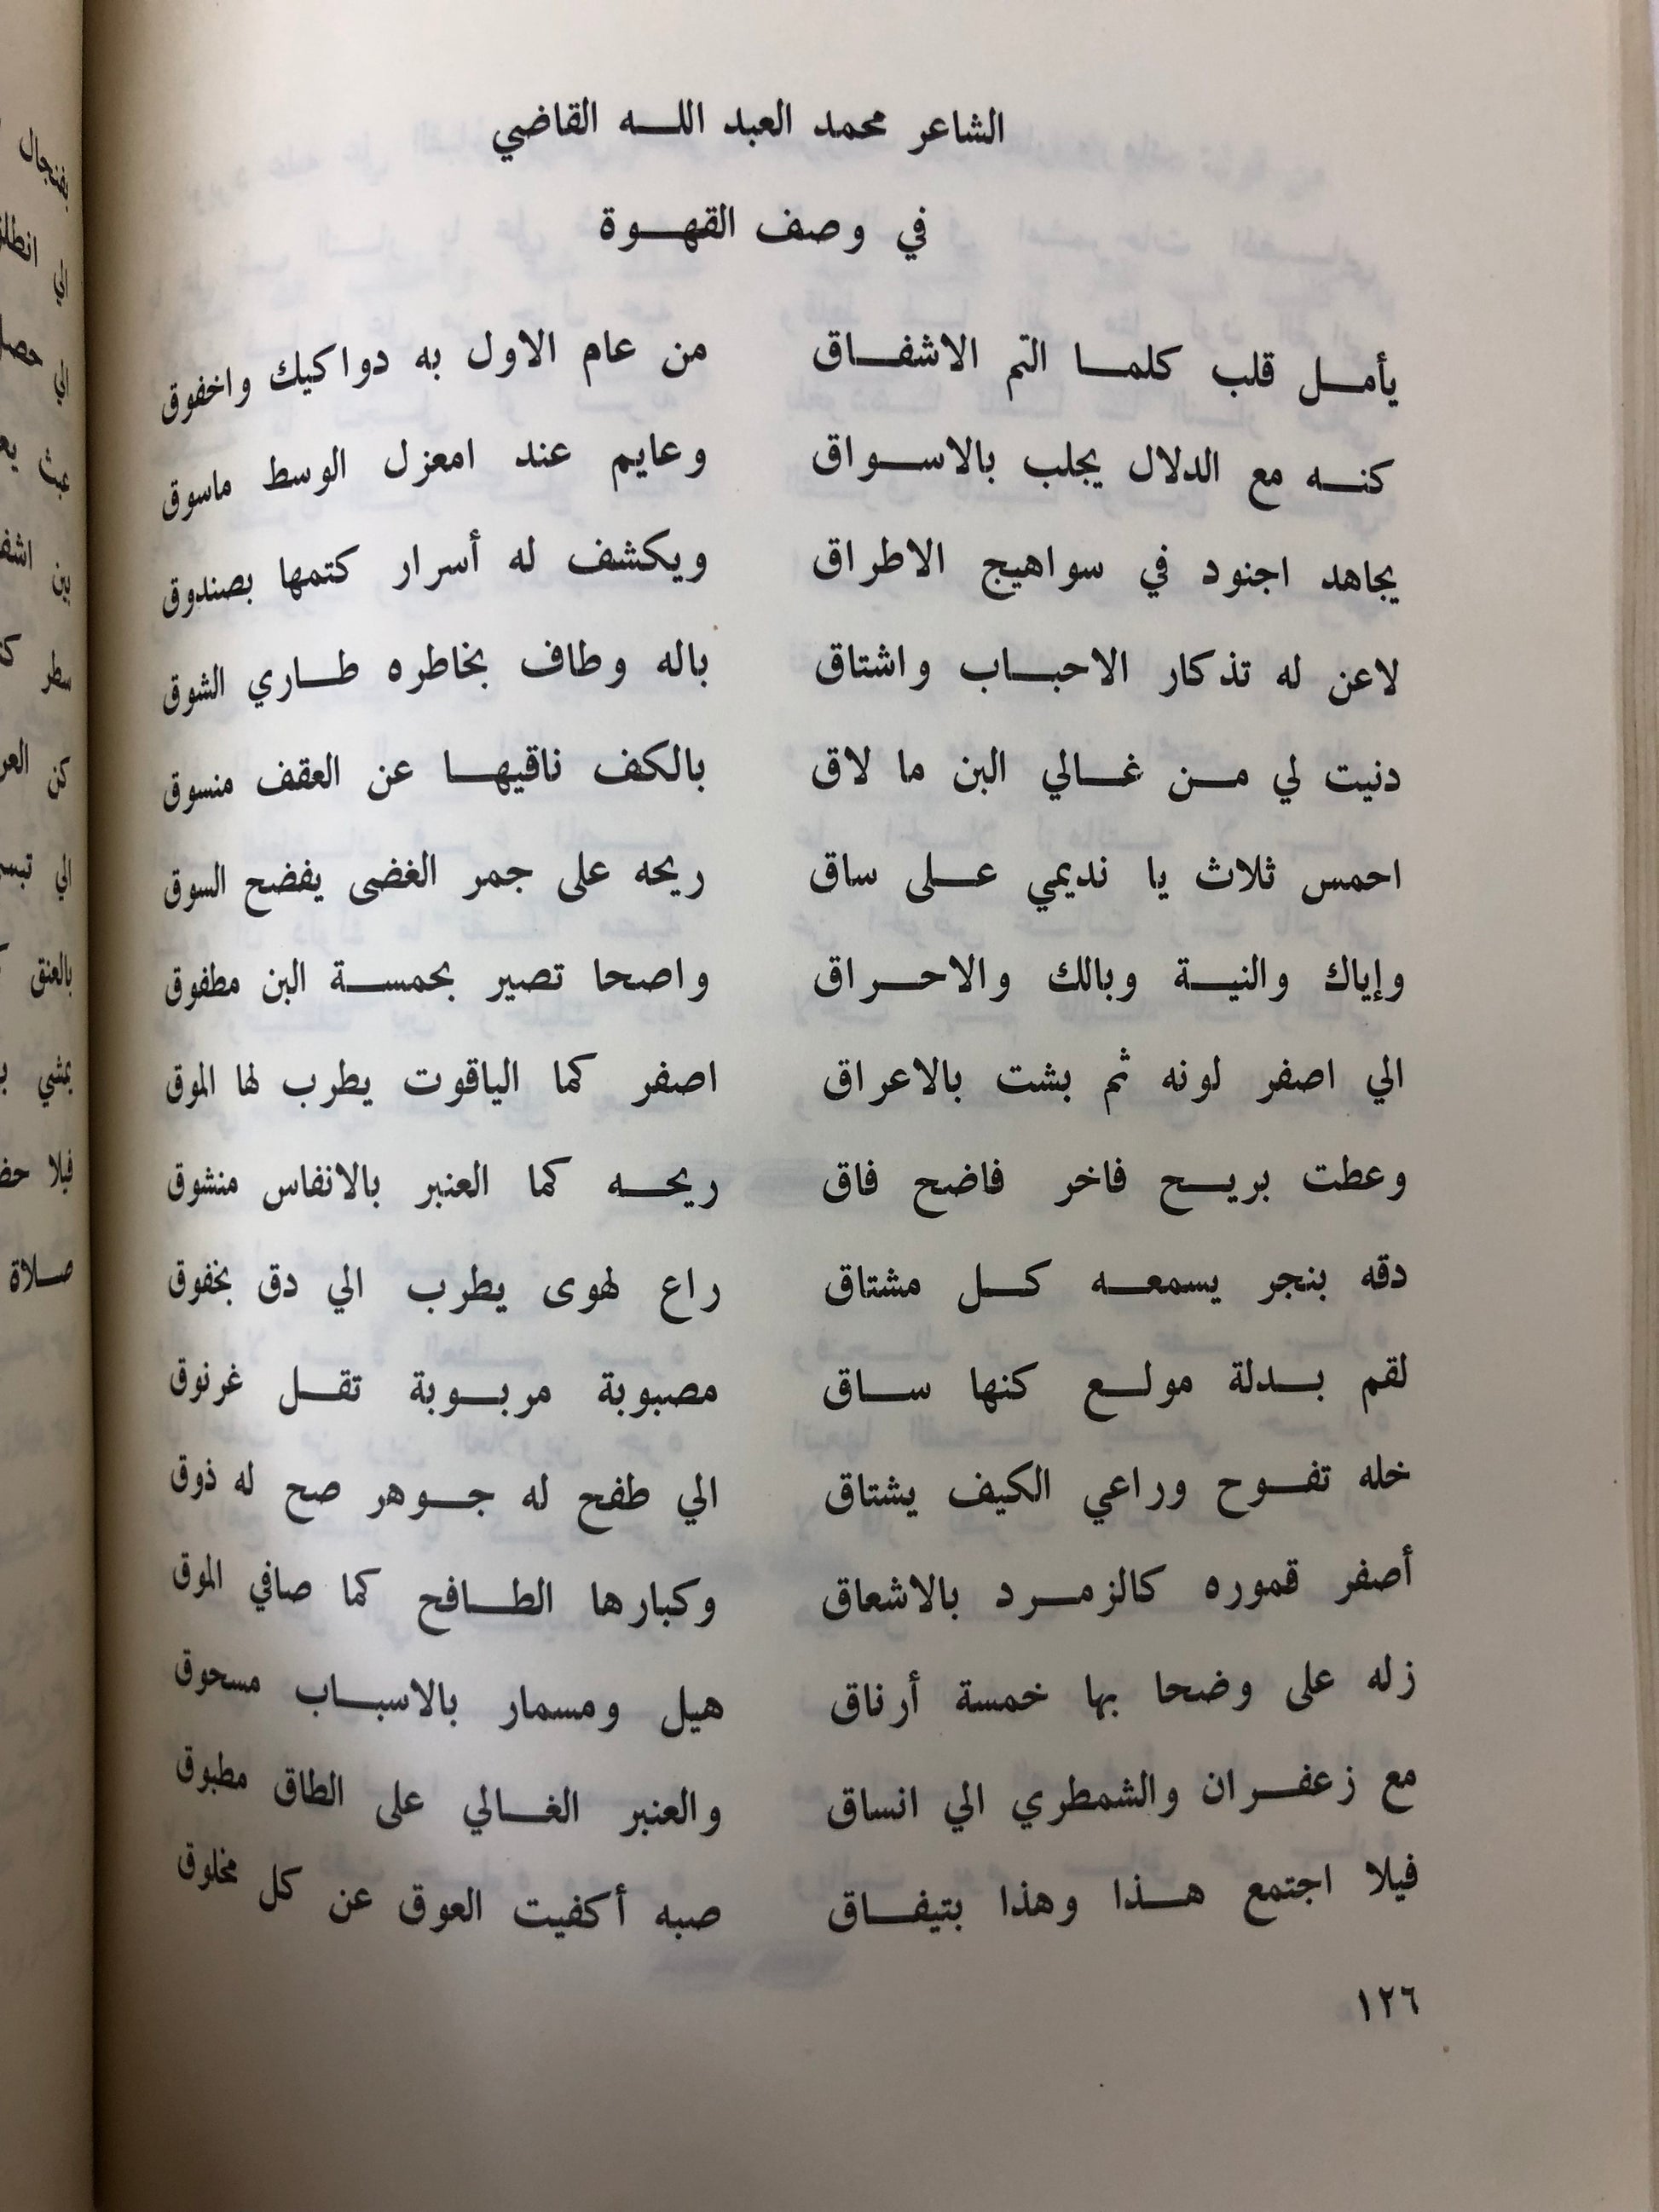 الشاعر محمد العبد الله القاضي
في وصف القهوة
يأمل قلب كلما التم الاشفاق من عام الاول به دواكيك واخفوق
كنه مع الدلال يجلب بالاسواق وعايم عند امعزل الوسط ماسوق
يجاهد اجنود في سواهيج الاطراق ويكشف له أسرار كتمها بصندوق
لاعن له تذكار الاحباب واشتاق باله وطاف بخاطره طاري الشوق
دنيت لي من غالي البن ما لاق بالكف ناقيها عن العقف منسوق
احمس ثلاث يا نديمي على ساق ريحه على جمر الغضى يفضح السوق
وإياك والنية وبالك والاحراق واصحا تصير بحمسة البن مطفوق
الي اصفر لونه ثم بشت بالاعراق اصفر كما الياقوت يطرب لها الموق
وعطت بريح فاخر فاضح فاق ريحه كما العنبر بالانفاس منشوق
دقه بنجر يسمعه كل مشتاق راع لهوى يطرب الي دق بخفوق
لقم بدلة مولع كنها ساق مصبوبة مربوبة تقل غرنوق
خله تفوح وراعي الكيف يشتاق الي طفح له جوهر صح له ذوق
أصفر قموره كالزمرد بالاشعاق وكبارها الطافح كما صافي الموق
زله على وضحا بها خمسة أرناق هيل ومسمار بالاسباب مسحوق
مع زعفران والشمطري الي انساق والعنبر الغالي على الطاق مطبوق
فيلا اجتمع هذا وهذا بتيفاق صبه أكفيت العوق عن كل مخلوق
١٢٦